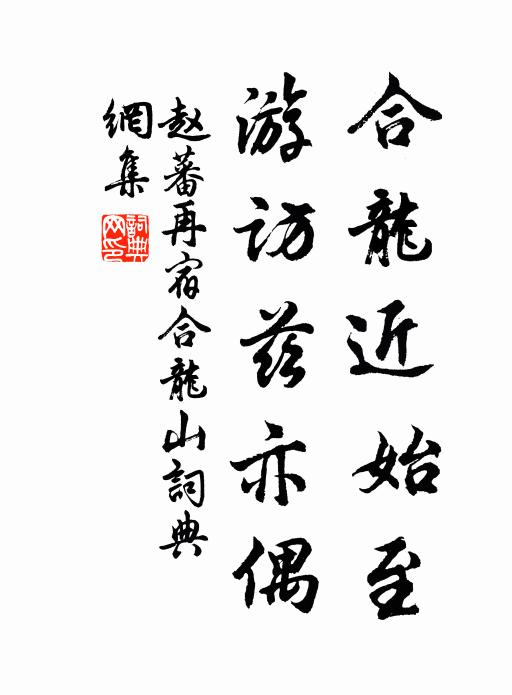 合龍近始至
游訪茲亦偶
赵蕃再宿合龍山詞典
網集
詞典
网印